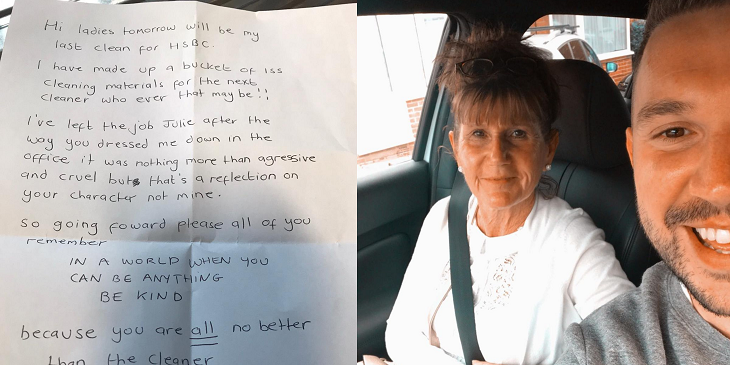 Hi ladies tomorrow will be my
last clean for HSBC.
I have made up a bucket of iss
cleaning materials for the next
cleaner who ever that may be!!
I've left the job Julie after the
way you dressed me down in the
office it was nothing more than agressive
and cruel but that's a reflection on
your character not mine.
So going foward please all of you
remember
IN A WORLD WHEN YOU
CAN BE ANYTHING
BE KIND
because you are all no better
than the cleaner